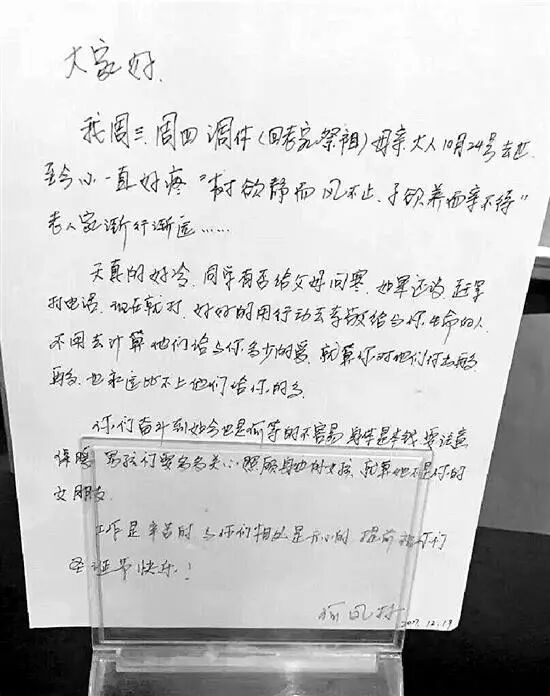 大家好.
我周三、周四调休(回老家祭祖)母亲大人10月24号去世
至今心一直好疼"树欲静而风不止、子欲养而亲不待"
老人家渐行渐远……
天真的好冷、同学有否给父母问寒、如果还没 赶紧
打电话、现在就打、好好的用行动去孝敬给与你生命的人、
不用去计算他们给与你多少的爱、就算你对他们付出再多
再多、也永远比不上他们给你的多
你们奋斗到如今也是何等的不容易 身体是本钱、要注意
保暖 男孩们要多多关心照顾身边的女孩、就算她不是你的
女朋友
工作是辛苦的 与你们相处是开心的 提前祝你们
圣诞节快乐!
2017.12.19